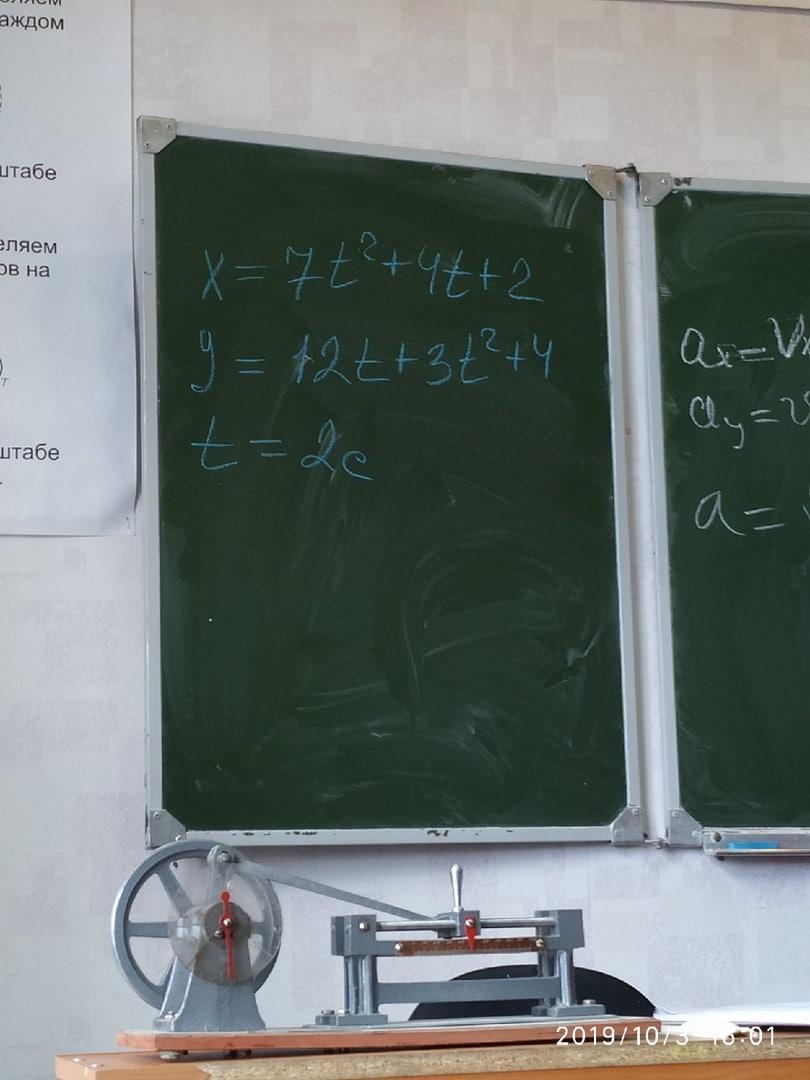 аждом
штабе
еляем
ов на
штабе
x = 7t² + 4t + 2
y = 12t + 3t² + 4
t = 2c
aₓ = Vₓ
a_y = v
a =
2019/10/3